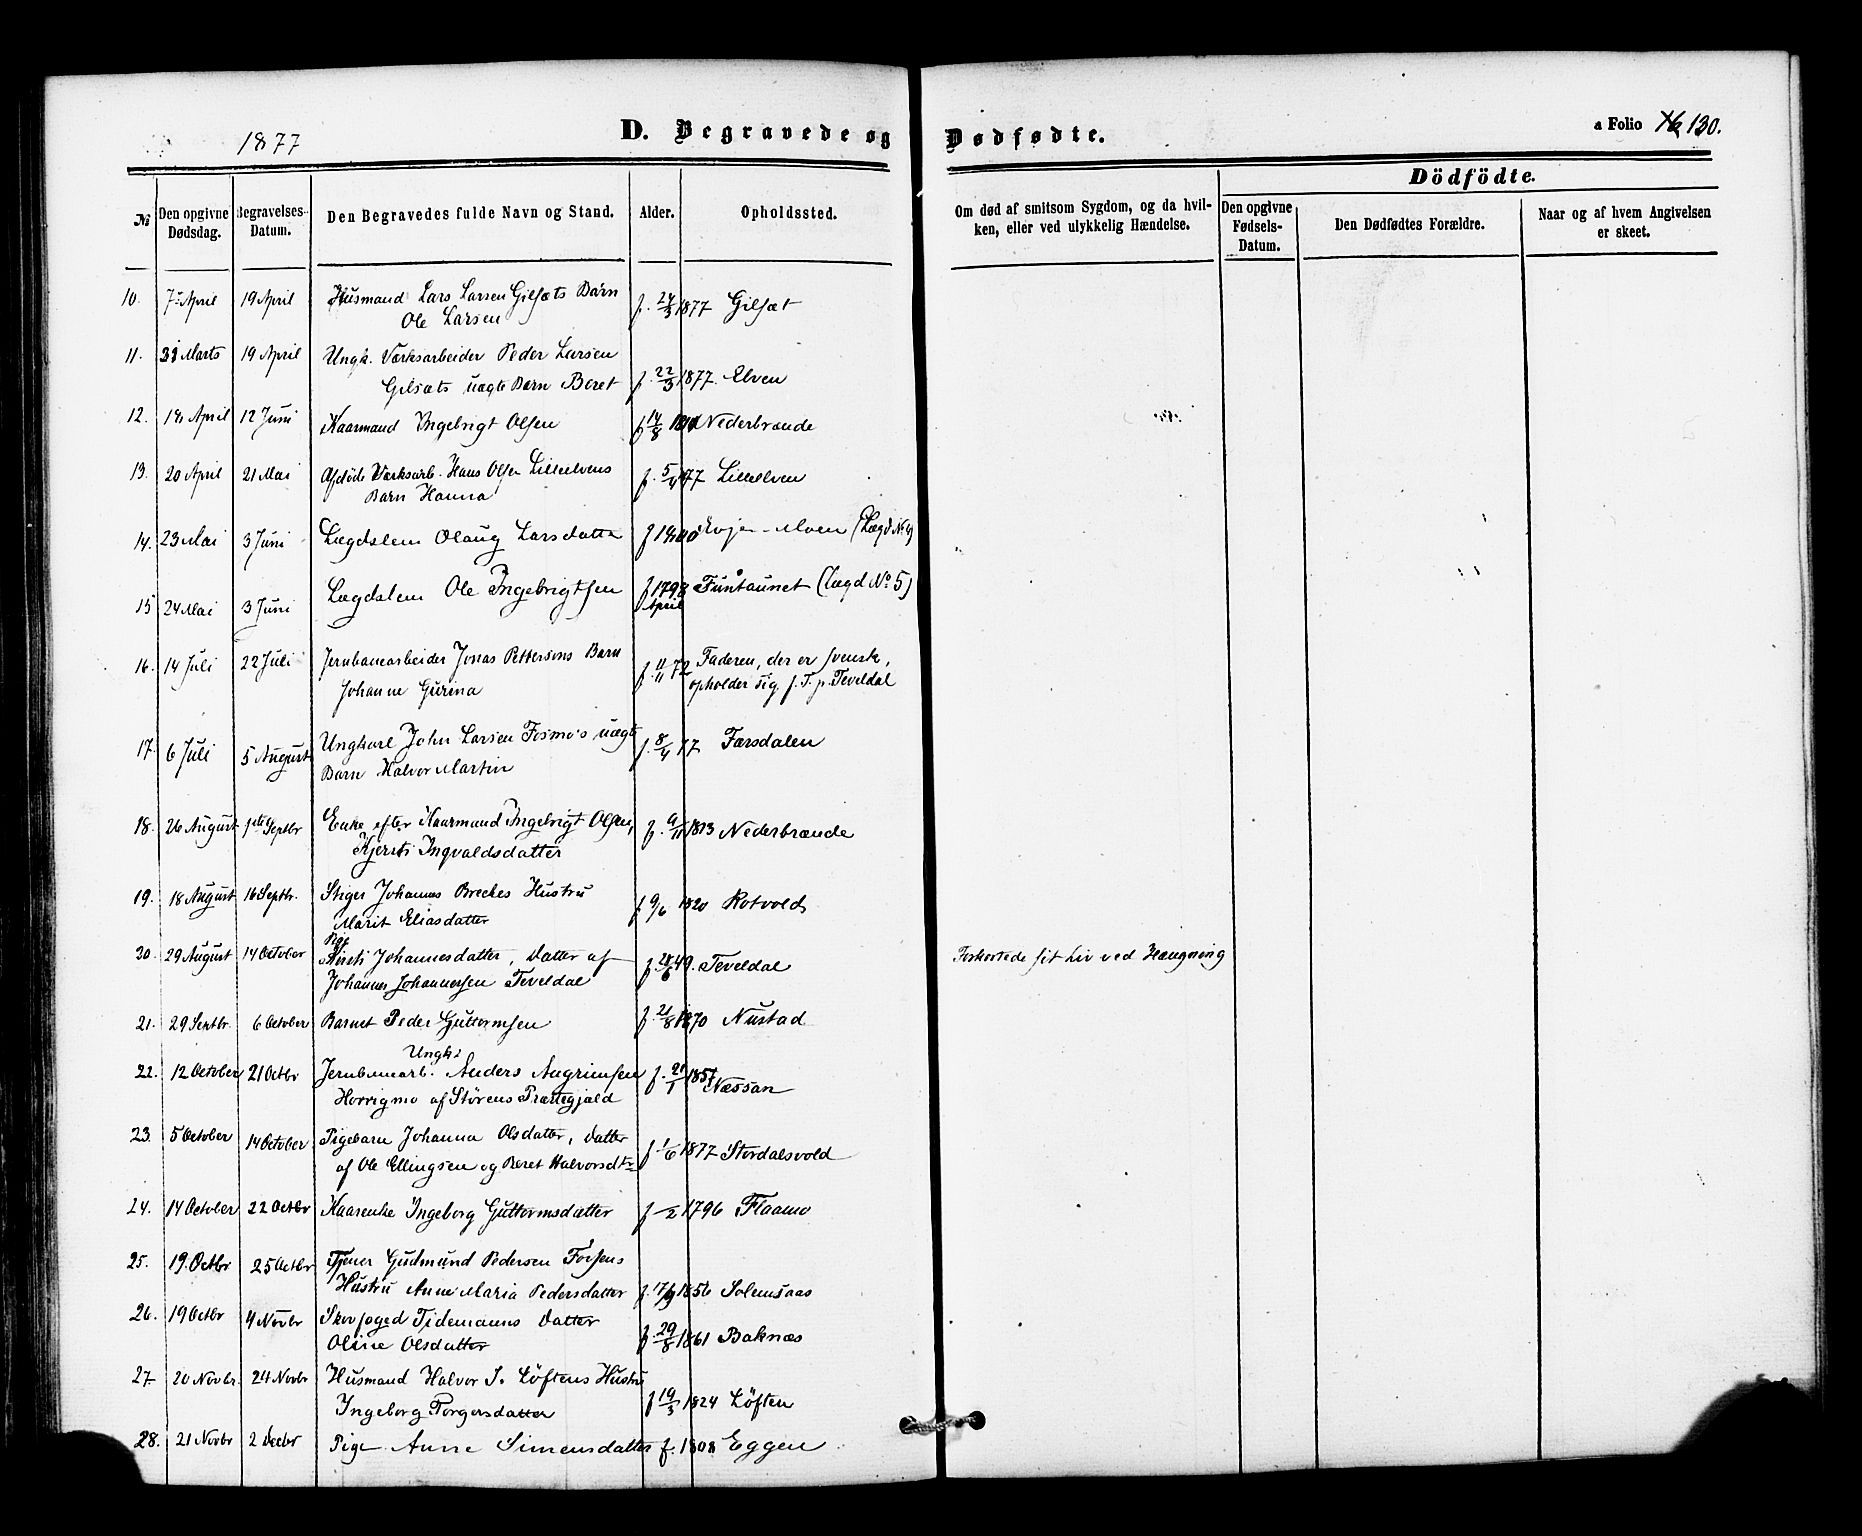 1877
D. Begravede og Dødfødte.
a Folio 130.
Dödfödte.
№
Den opgivne Dødsdag.
Begravelses-Datum.
Den Begravedes fulde Navn og Stand.
Alder.
Opholdssted.
Om død af smitsom Sygdom, og da hvilken, eller ved ulykkelig Hændelse.
Den opgivne Fødsels-Datum.
Den Dødfødtes Forældre.
Naar og af hvem Angivelsen er skeet.
10. 7 April 19 April Husmand Lars Larsen Gilsæts Barn f. 24/3 1877 Gilsæt
Ole Larsen
11. 31 Marts 19 April Ungk. Værksarbeider Peder Larsen
Gilsæts uægte Barn Beret f. 22/3 1877. Elven
12. 18 April 12 Juni Kaarmand Ingebrigt Olsen f 14/8 Nederbrænde
13. 20 April 21 Mai Afdøde Værksarb. Hans Olsen Lilleelvens f. 5/4 77 Lilleelven
Barn Hanna
14. 23 Mai 3 Juni Lægdslem Olaug Larsdatter f 1800 Evjen-Moen (Lægd No 4)
15 24 Mai 3 Juni Lægdslem Ole Ingebrigtsen f 1798 Funtaunet (Lægd No 5)
April
16. 14 Juli 22 Juli Jernbanearbeider Jonas Pettersons Barn f. 11/11 72 Faderen, der er svensk,
Johanne Gurina opholder sig f. T. p. Teveldal
17. 6 Juli 5 August Ungkarl John Larsen Fosmo's uægte f. 8/4 77 Færsdalen
Barn Halvor Martin
18. 26 August 1ste Septbr Enke efter Kaarmand Ingebrigt Olsen, f. 9/11 1813 Nederbrænde
Kjersti Ingvaldsdatter
19. 18 August 16 Septbr. Stiger Johannes Breckes Hustru f 9/6 1820 Rotvold
Marit Eliasdatter
Pige
30. 29 August 14 October Kirsti Johannesdatter, Datter af f. 28/6 49. Teveldal Forkortede sit Liv ved Hængning
Johannes Johannesen Teveldal
21. 29 Septbr. 6 October Barnet Peder Guttormsen f. 21/8 1870 Nustad
Ungk.
22. 12 October 21 Octbr Jernbanearb. Anders Angrimsen f. 21/1 1857 Næssan
Horrigmo af Størens Præstegjæld
23. 5 October 14 October Pigebarn Johanna Olsdatter, Datter f 1/6 1877 Stordalsvold
af Ole Ellingsen og Beret Halvorsdtr
24. 14 October 22 Octbr Kaarenke Ingeborg Guttormsdatter f -/2 1796 Flaamo
25. 19. Octbr 25 Octbr Tjener Gudmund Pedersen Forsens
Hustru Anne Maria Pedersdatter f. 17/9 1856 Solemsaas
26. 19 Octbr 4 Novbr Skovfoged Tidemanns Datter
Oline Olsdatter f 29/8 1861 Baknæs
27 20 Novbr. 24 Novbr Husmand Halvor J. Løftens Hustru
Ingeborg Torgersdatter f 19/3 1824 Løften
28. 21 Novbr 2 Decbr Pige Anne Simensdatter f. 1808 Eggen